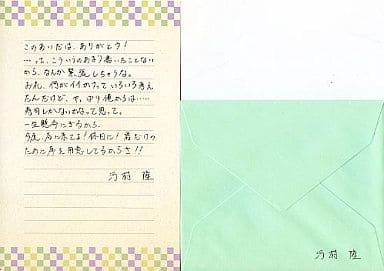 このあいだは、ありがとう!
…って、こういうのあまり書いたことない
から、なんか緊張しちゃうな。
お礼、何がイイかなっていろいろ考え
たんだけど、や、ぱり俺からは……
寿司しかないかなって思って。
一生懸命にぎるから、
今度、店に来てよ!休日に!君だけの
ために席を用意してるからさ!!
陸
陸